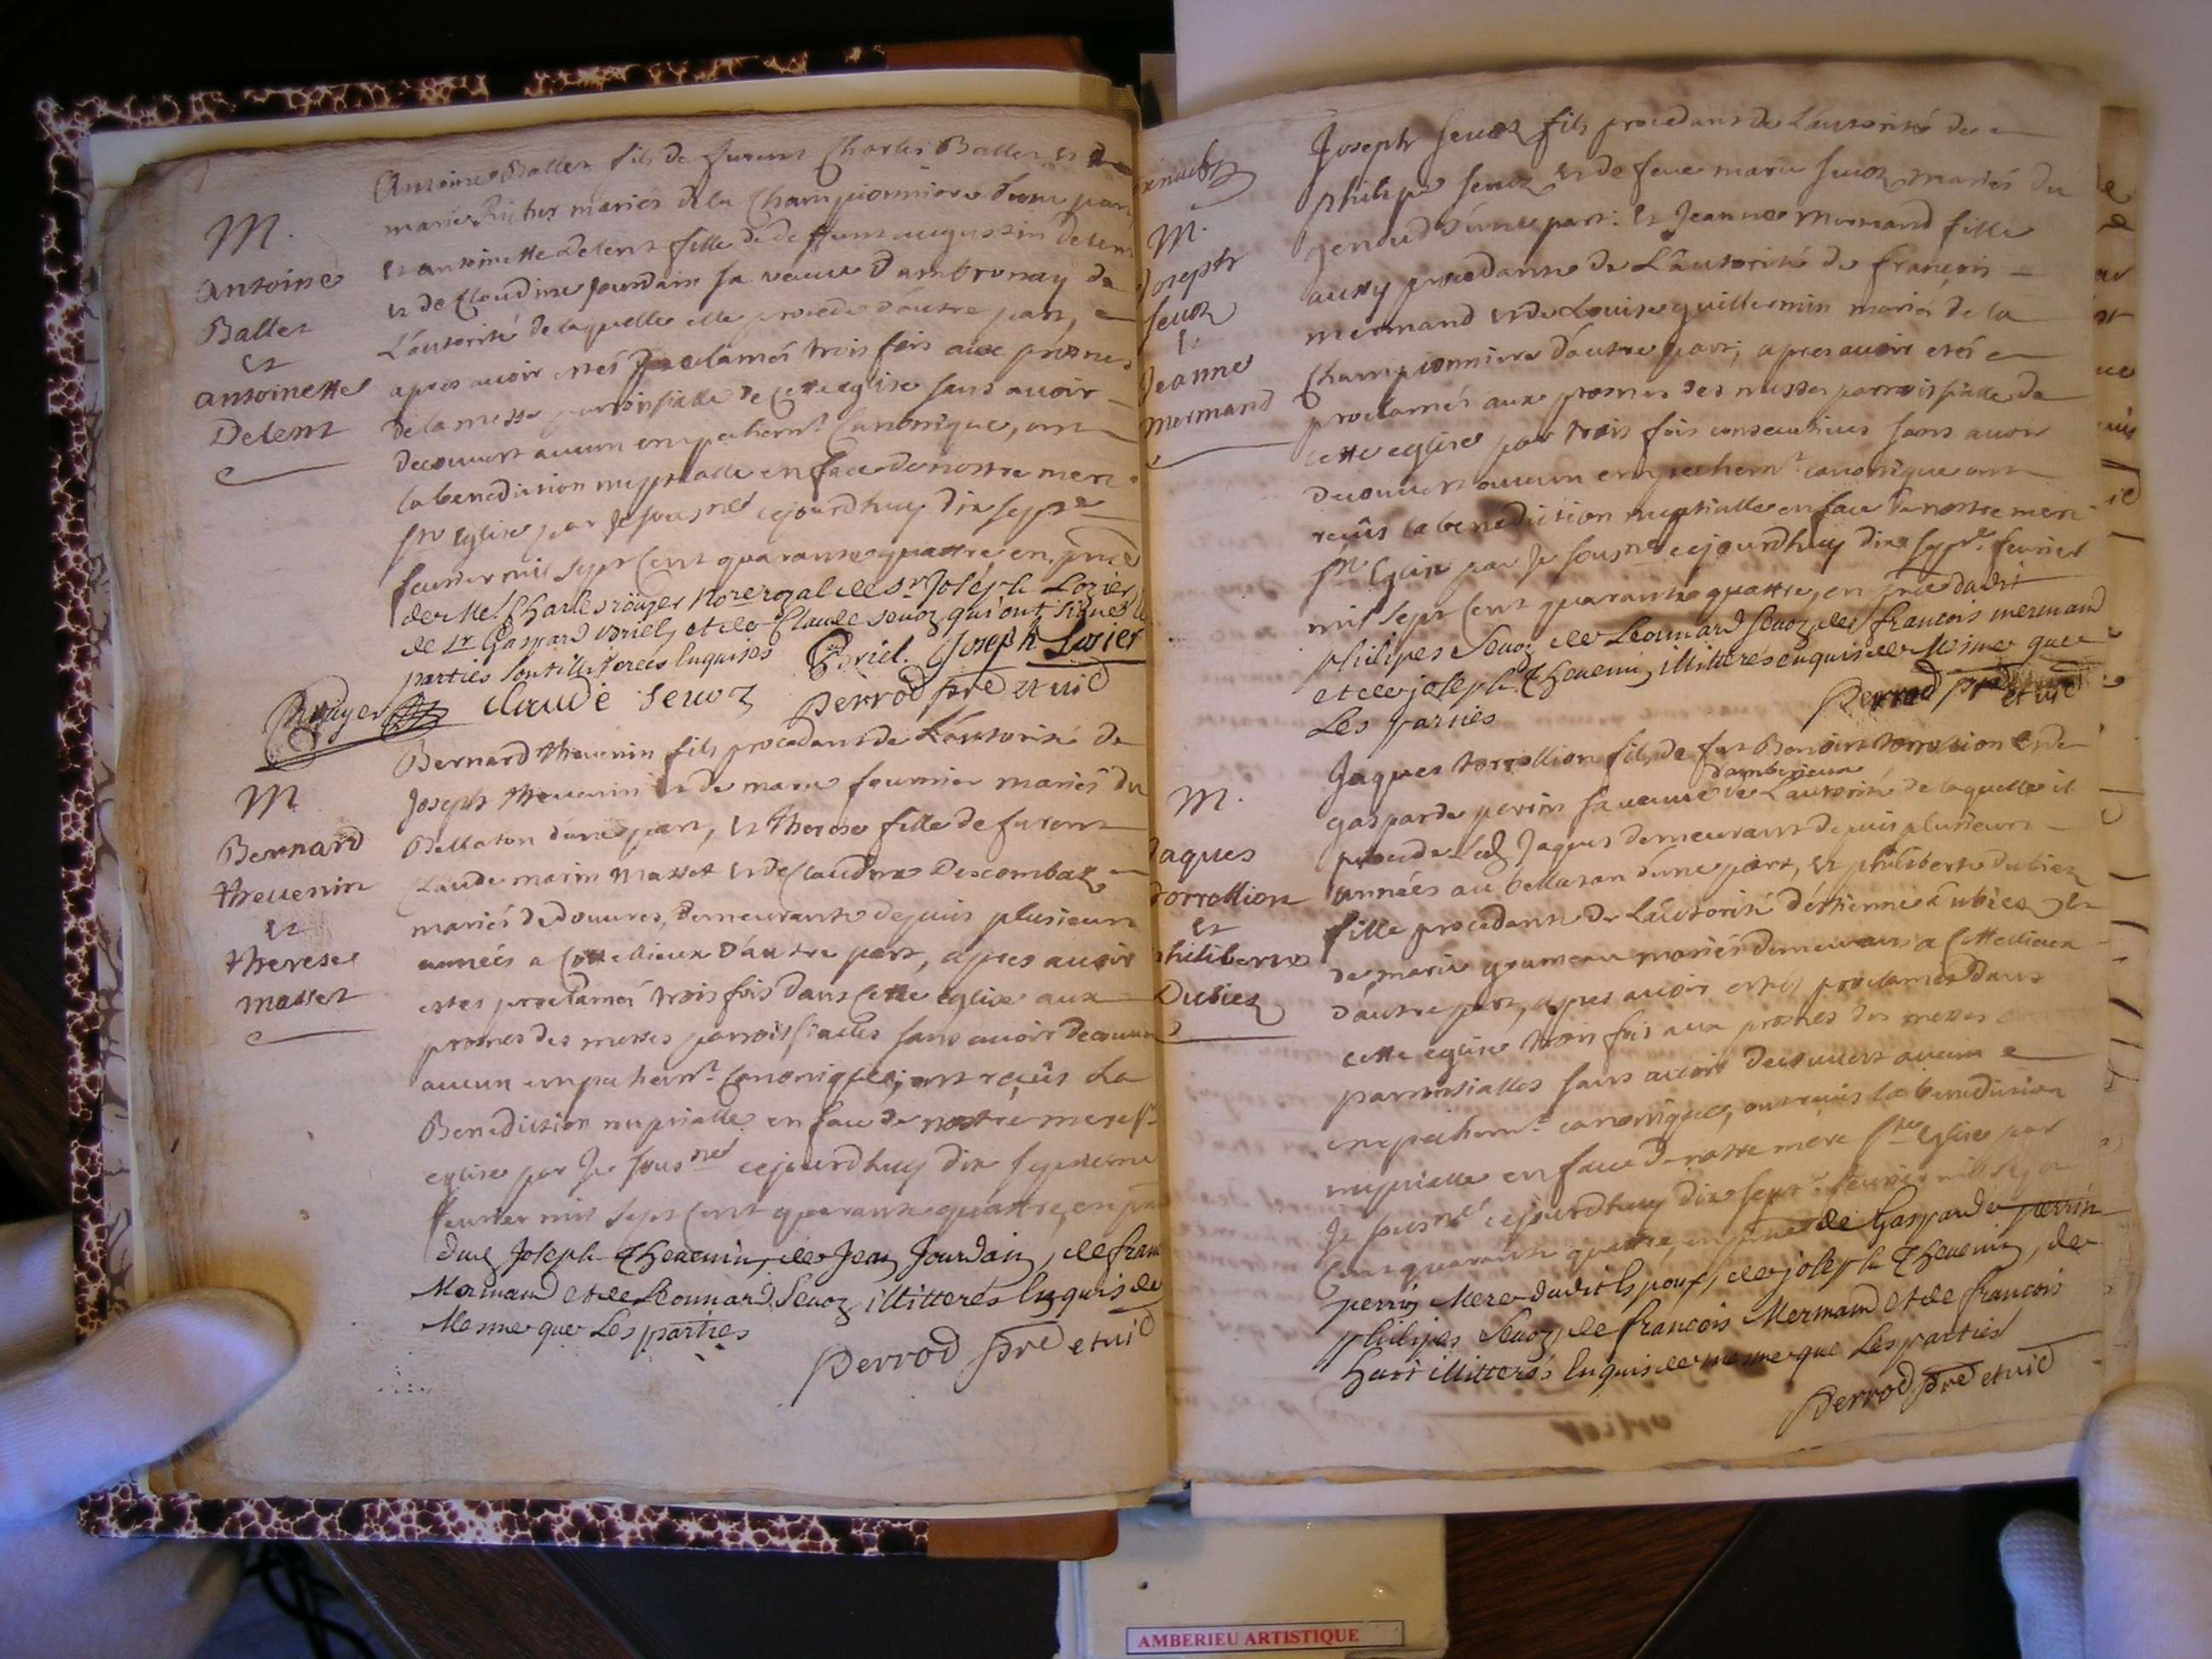 M.
Antoine
Ballet
et
antoinette
Delent
Antoine Ballet fils de furent Charles Ballet et de
marie Richer mariés de la Championniere d'une part
et antoinette Delent fille de deffunt augustin delent
et de Claudine Jourdain sa veuve d'ambronay de
L'autorité de laquelle elle procede d'autre part,
apres avoir estés proclamés trois fois aux prosnes
de la messe parroissialle de cette eglise sans avoir
decouvert aucun empechemt. Canonique, ont
la benediction nuptialle en face de nostre mere
ste Eglise par Je sousné cejourdhuy dix sept
fevrier mil sept Cent quarante quattre, en pnce
de Me. Charles röuyer Nore royal de sr Joseph Lozier
de sr Gaspard Briel, et de Claude Sevoz qui ont signés
parties sont illiterées Enquises Briel. Joseph Lozier
Röuyer Claude Sevoz Perrod pre et vic
M.
Bernard
thevenin
et
therese
masset
Bernard thevenin fils procedant de L'autorité de
Joseph thevenin et de marie fournier mariés du
Bellaton d'une part, et therese fille de furent
Claude marin Masset et de Claudine Descombaz
mariés de douvres, demeurante depuis plusieurs
années a Cotte lieux d'autre part, apres avoir
estes proclamés trois fois dans Cette eglise aux
prosnes des messes parroissialles sans avoir decouvert
aucun empechemt. Canonique, ont reçûs La
Benediction nuptialle en face de nostre mere ste
eglise par Je sousné cejourdhuy dix septieme
fevrier mil sept Cent quarante quattre, en pnce
dud Joseph Thevenin, de Jean Jourdain, de fran
Mermand et de Leonnard Sevoz illitterés Enquis de
Mesme que Les parties
Perrod pre et vic
M.
Joseph
Sevoz
&
Jeanne
mermand
Joseph Sevoz fils procedant de L'autorité de
philipe Sevoz et de feue marie Sevoz mariés du
genoud d'une part: et Jeanne Mermand fille
aussy procedante de L'autorité de françois
mermand et de Louise guillermin mariés de la
Championniere d'autre part; apres avoir etés
proclamés aux prosnes des messes parroissialle de
cette eglise par trois fois consecutives sans avoir
decouvert aucun empechemt. canonique ont
reçûs la benediction nuptialle en face de nostre mere
ste Eglise par Je sousné cejourdhuy dix sept. fevrier
mil sept Cent quarante quattre, en pnce dudit
philipes Sevoz de Leonnard Sevoz, de francois mermand
et de joseph Thevenin, illitterés enquis de Mesme que
Les parties
Perrod pre et vic
M.
Jaques
torrollion
et
philiberte
Dubiez
Jaques torrollion fils de fut Benoist torrollion et de
d'amberieux
gasparde perrin sa veuve de L'autorité de laquelle il
procede Led Jaques demeurant depuis plusieurs
années au bellaton d'une part, et philiberte dubiez
fille procedante de L'autorité d'estienne dubiez et
de marie grumeau mariés demeurans a Cotte lieux
d'autre part, apres avoir estés proclamés dans
cette eglise trois fois aux prosnes des messes
parroissialles sans avoir decouvert aucun
empechemt. canonique, ont reçûs la benediction
nuptialle en face de nostre mere ste Eglise par
Je sousné cejourdhuy dix sept. fevrier mil sept
Cent quarante quattre, en pnce de Gasparde perrin
perrin Mere dudit Epoux, de joseph Thevenin, de
philipes Sevoz, de francois Mermand et de francois
illitterés Enquis de mesme que Les parties
Perrod pre et vic
AMBERIEU ARTISTIQUE